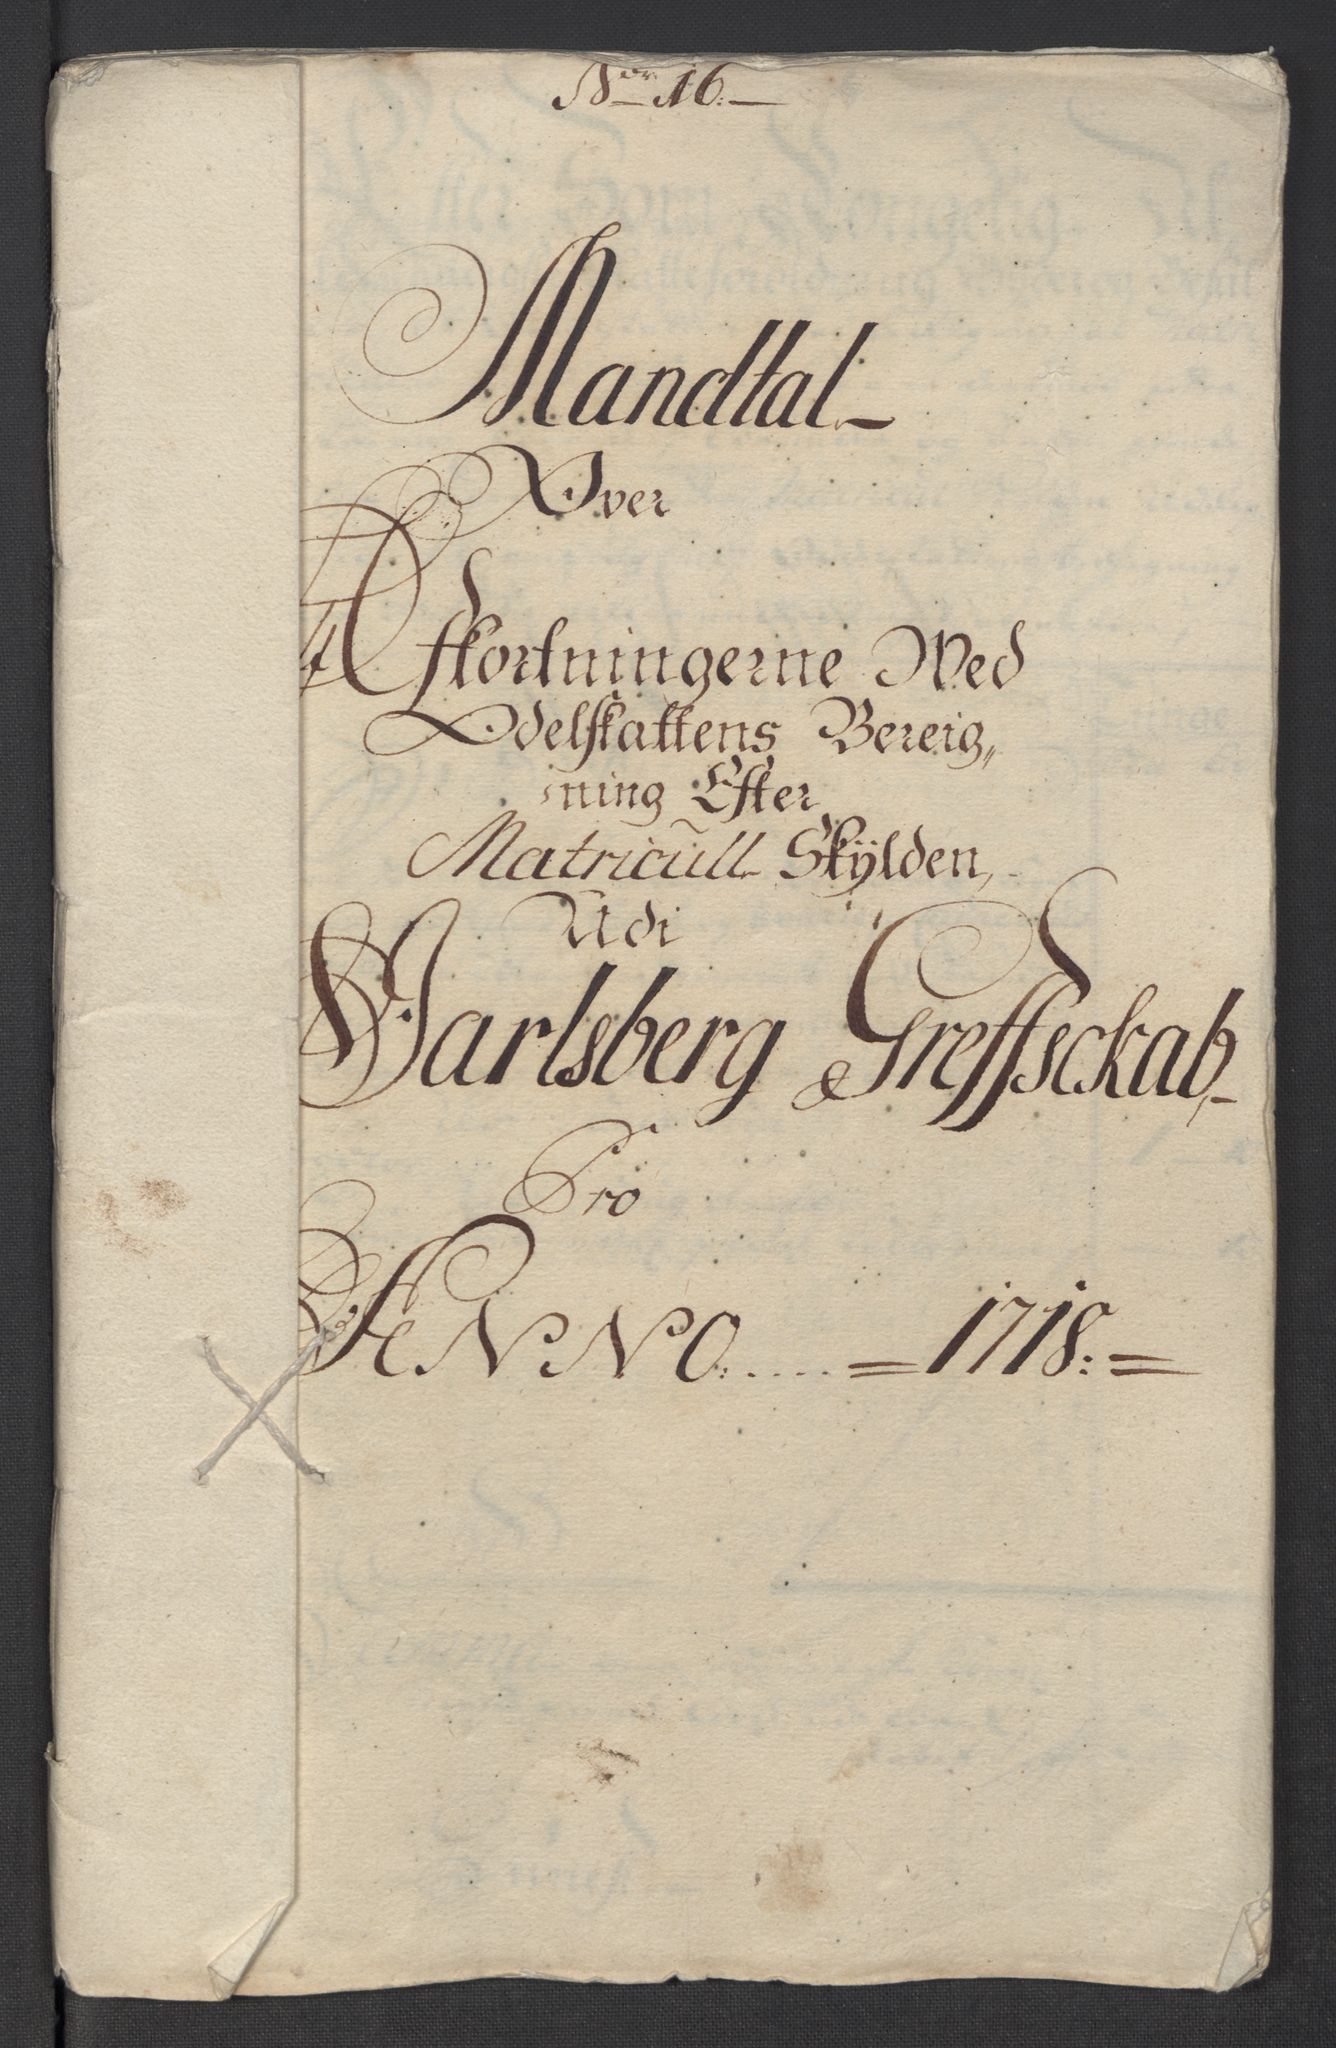 No 16.
Mandtal
Over
Afkortningerne Wed
Odelskattens Bereig„
ning Efter
Matricull Skÿlden,
Udi
Jarlsberg Greffsckab,
Pro
ANNO..... = 1718: =